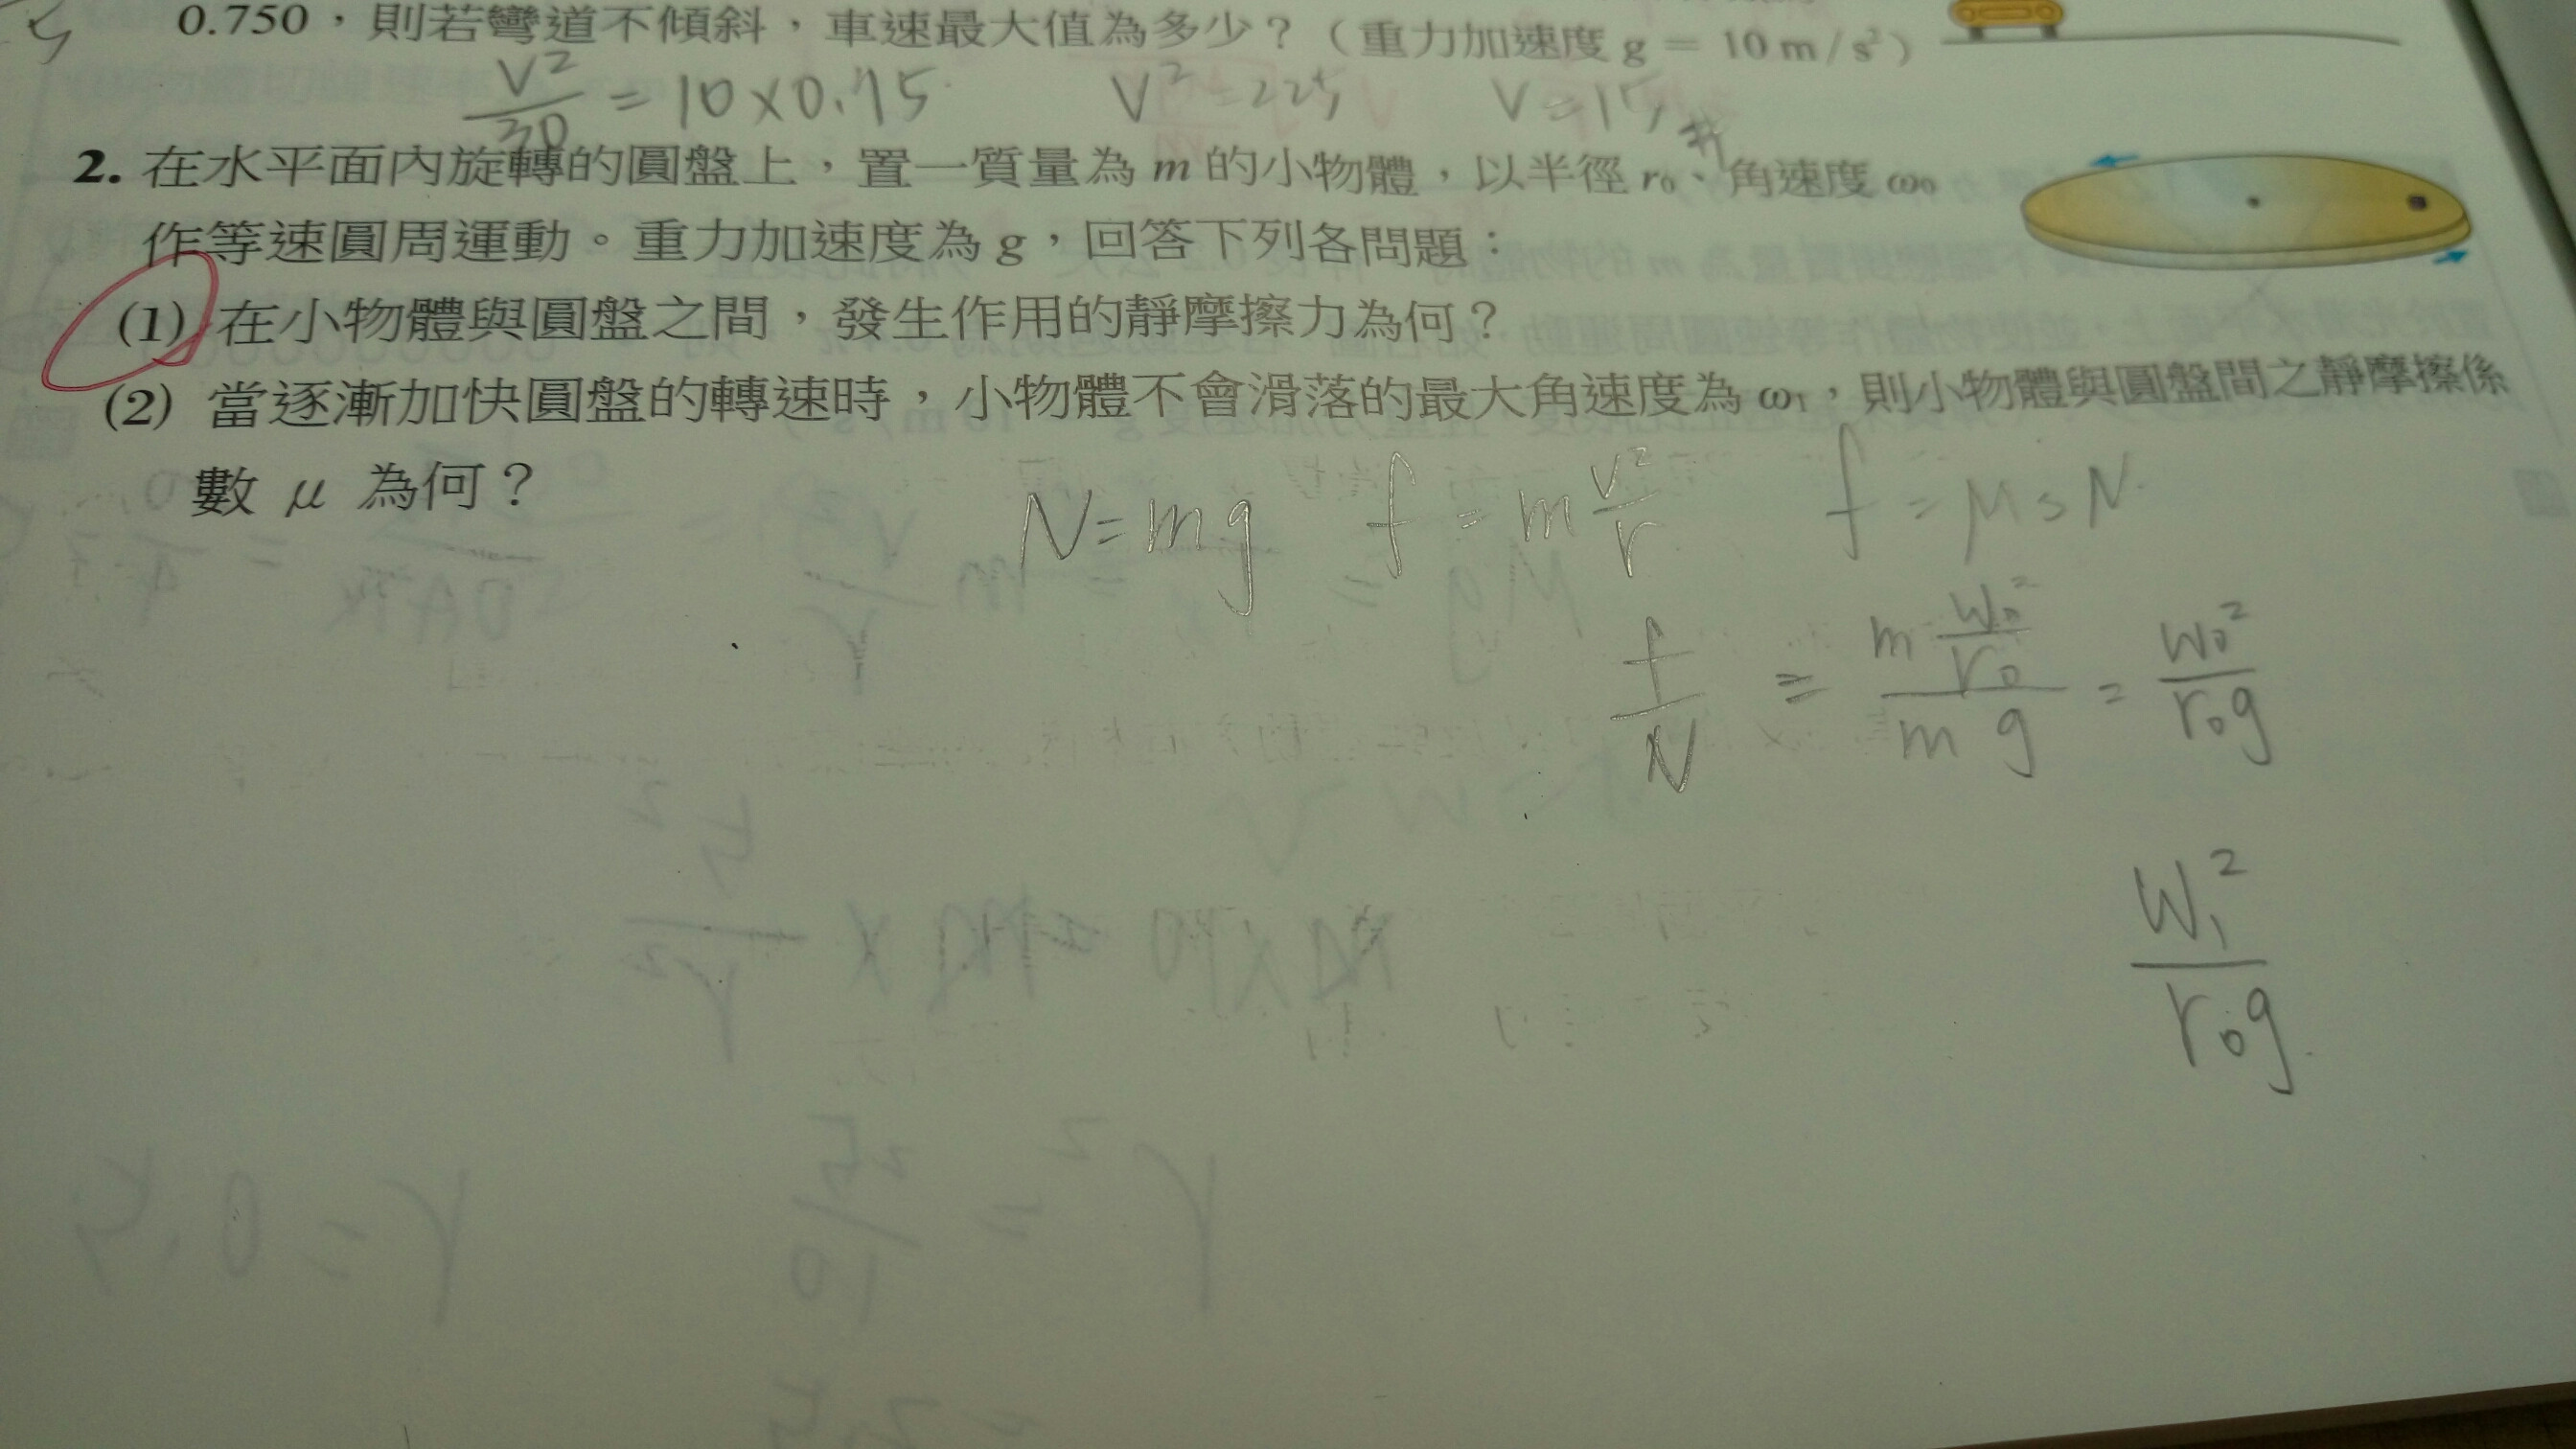 0.750，則若彎道不傾斜，車速最大值為多少？（重力加速度 g = 10 m/s²）
V²/30 = 10×0.75 V²=225 V=15
2. 在水平面內旋轉的圓盤上，置一質量為 m 的小物體，以半徑 r₀、角速度 ω₀
作等速圓周運動。重力加速度為 g，回答下列各問題：
(1) 在小物體與圓盤之間，發生作用的靜摩擦力為何？
(2) 當逐漸加快圓盤的轉速時，小物體不會滑落的最大角速度為 ω₁，則小物體與圓盤間之靜摩擦係
數 μ 為何？
N=mg f=m v²/r f=μsN
f/N = m w₀²/r₀ / mg = w₀²/r₀g
w₁²/r₀g